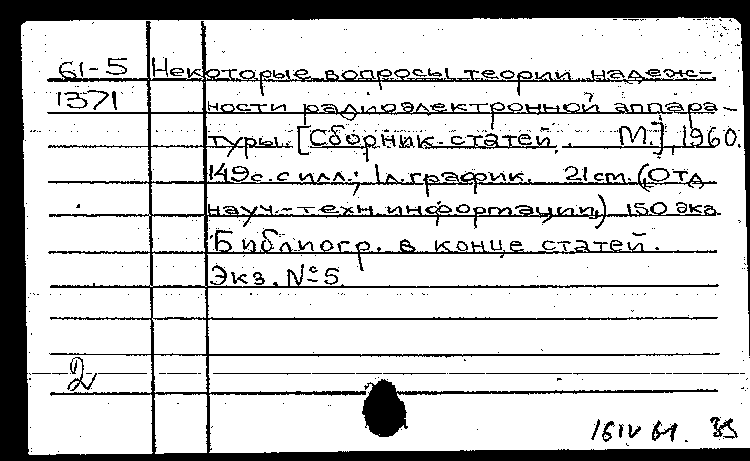 61-5 Некоторые вопросы теории надеж-
1371 ности радиоэлектронной аппара-
туры. [Сборник статей. М.], 1960.
149с. с илл.; 1л. график. 21 cm. (Отд
науч.-техн. информации.) 150 экз
Библиогр. в конце статей.
Экз. № 5
2
16 IV 61.